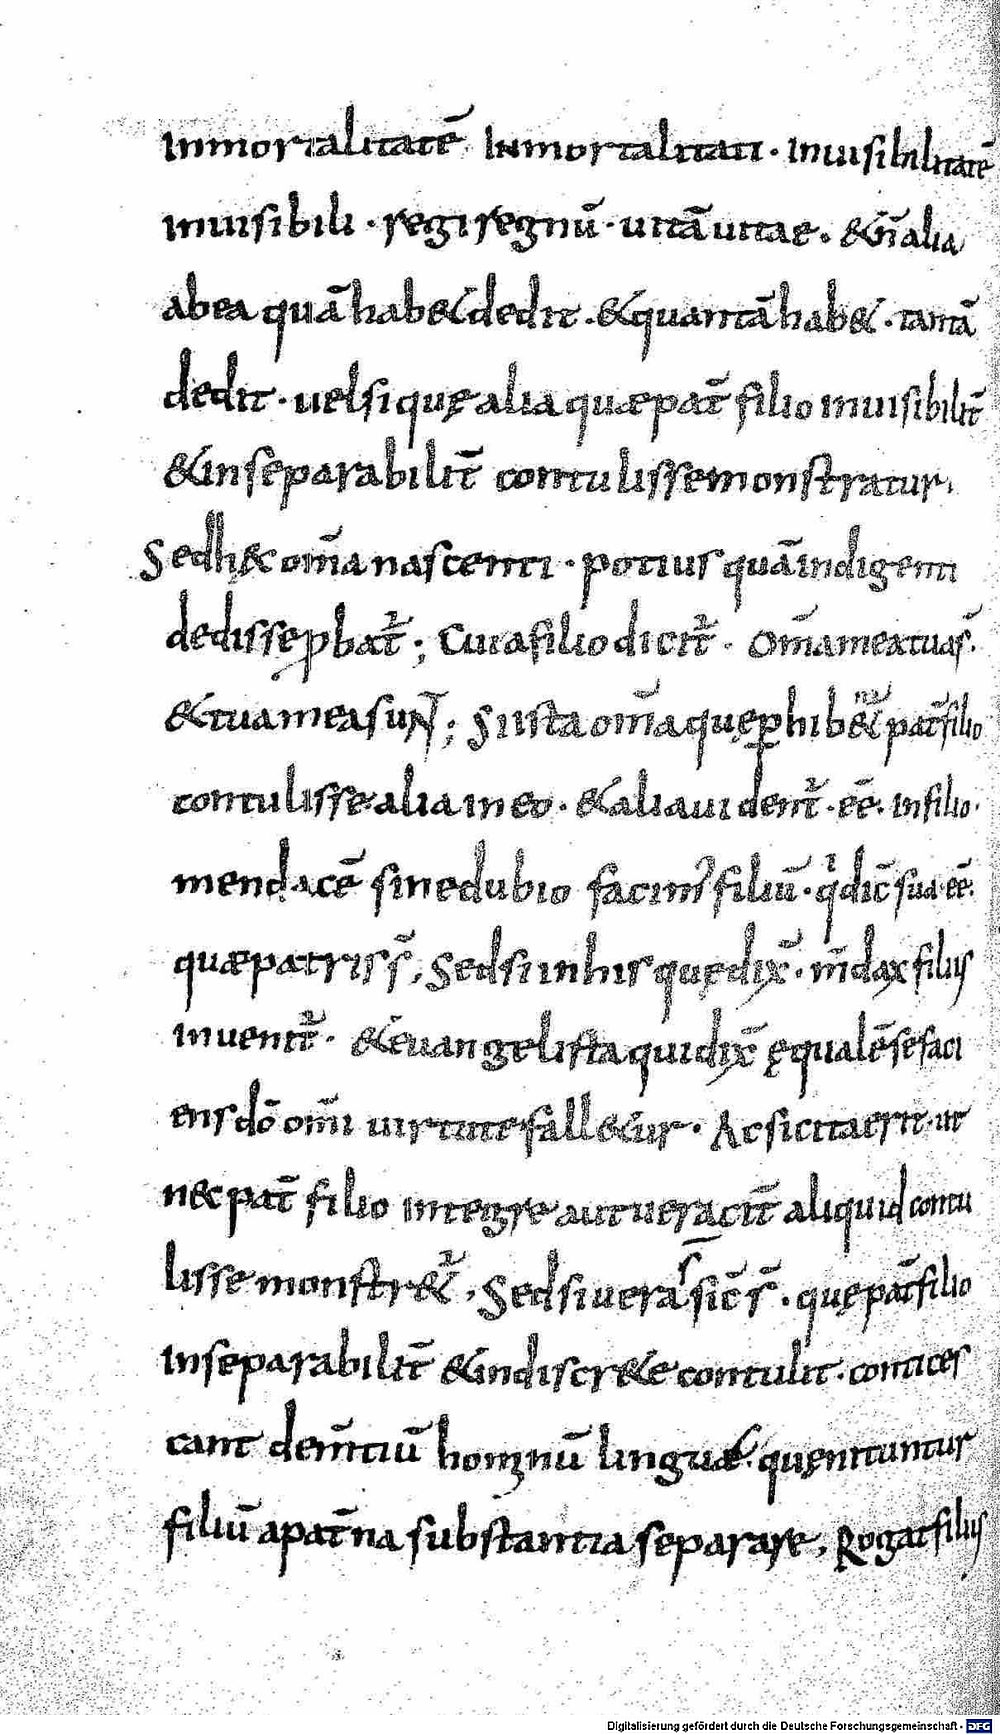 inmortalitatē. Inmortalitati · inuisibilitatē
inuisibili · regi regnū · uitā uitae · & n̄ alia
ab ea quā hab& dedit · & quantā hab& · tantā
dedit · uel si quę alia quae pat̄ filio inuisibilit̄
& inseparabilit̄ contulisse monstratur,
Sed hęc om̄a nascenti · potius quā indigenti
dedisse ꝓbat᷑ ; Cui a filio dicit᷑ · Om̄a mea tua s̄ ·
& tua mea sunt ; Si ista om̄a quę ꝑhib&ur pat̄ filio
contulisse alia in eo · & alia uident᷑ · eē · in filio ·
mendacē sine dubio facim᷒ filiū · qͥ dic̄ sua · eē ·
quae patris s̄, Sed si in his quę dix̄ · m̄dax filius
inuenit᷑ · & euangelista qui dix̄ ęqualē se faci
ens dō om̄i uirtute fall&ur · Ac sic ita erit · ut
nec pat̄ filio integre aut ueracit̄ aliquid contu
lisse monstr&᷑, Sed si uera s̄ sic̄ s̄ · quę pat̄ filio
inseparabilit̄ & indiscr&e contulit · contices
cant dem̄tiū hominū linguae · quę nituntur
filiū a pat̄na substantia separare, Rogat filius
Digitalisierung gefördert durch die Deutsche Forschungsgemeinschaft · DFG